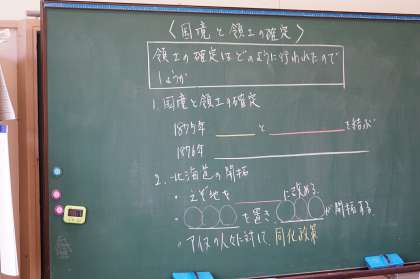 〈国境と領土の確定〉
領土の確定はどのように行われたので
しょうか
1.国境と領土の確定
1875年 と を結ぶ
1876年
2.北海道の開拓
・えぞ地を に改める
・○○○を置き○○○が開拓する
・アイヌの人々に対して同化政策